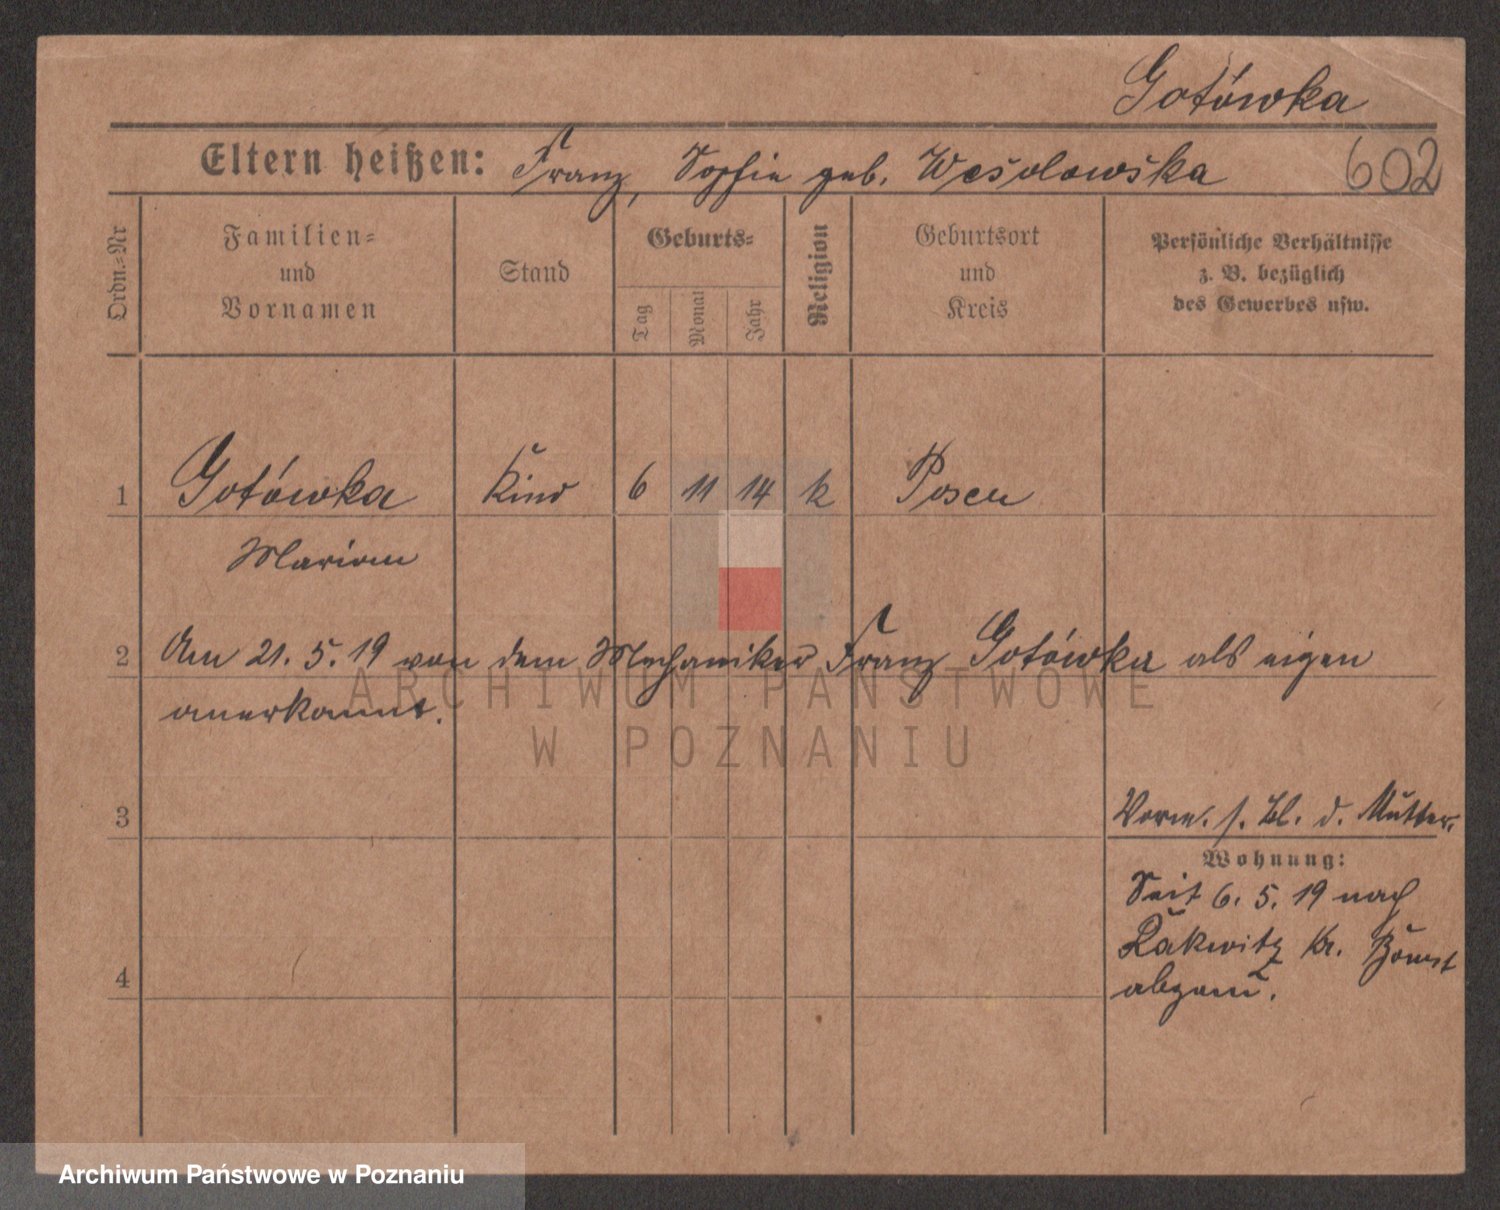 Gotówka
Eltern heißen: Franz, Sophie geb. Wesolowska
602
Ordn.=Nr
Familien=
und
Vornamen
Stand
Geburts=
Tag
Monat
Jahr
Religion
Geburtsort
und
Kreis
Persönliche Verhältnisse
z. B. bezüglich
des Gewerbes usw.
1 Gotówka Kind 6 11 14 k Posen
Marian
2 Am 21. 5. 19 von dem Mechaniker Franz Gotówka als eigen
anerkannt.
3
Vorm. s. Bl. d. Mutter.
Wohnung:
Seit 6. 5. 19 nach
Rakwitz Kr. Bomst
4
abgem.
ARCHIWUM PAŃSTWOWE
W POZNANIU
Archiwum Państwowe w Poznaniu